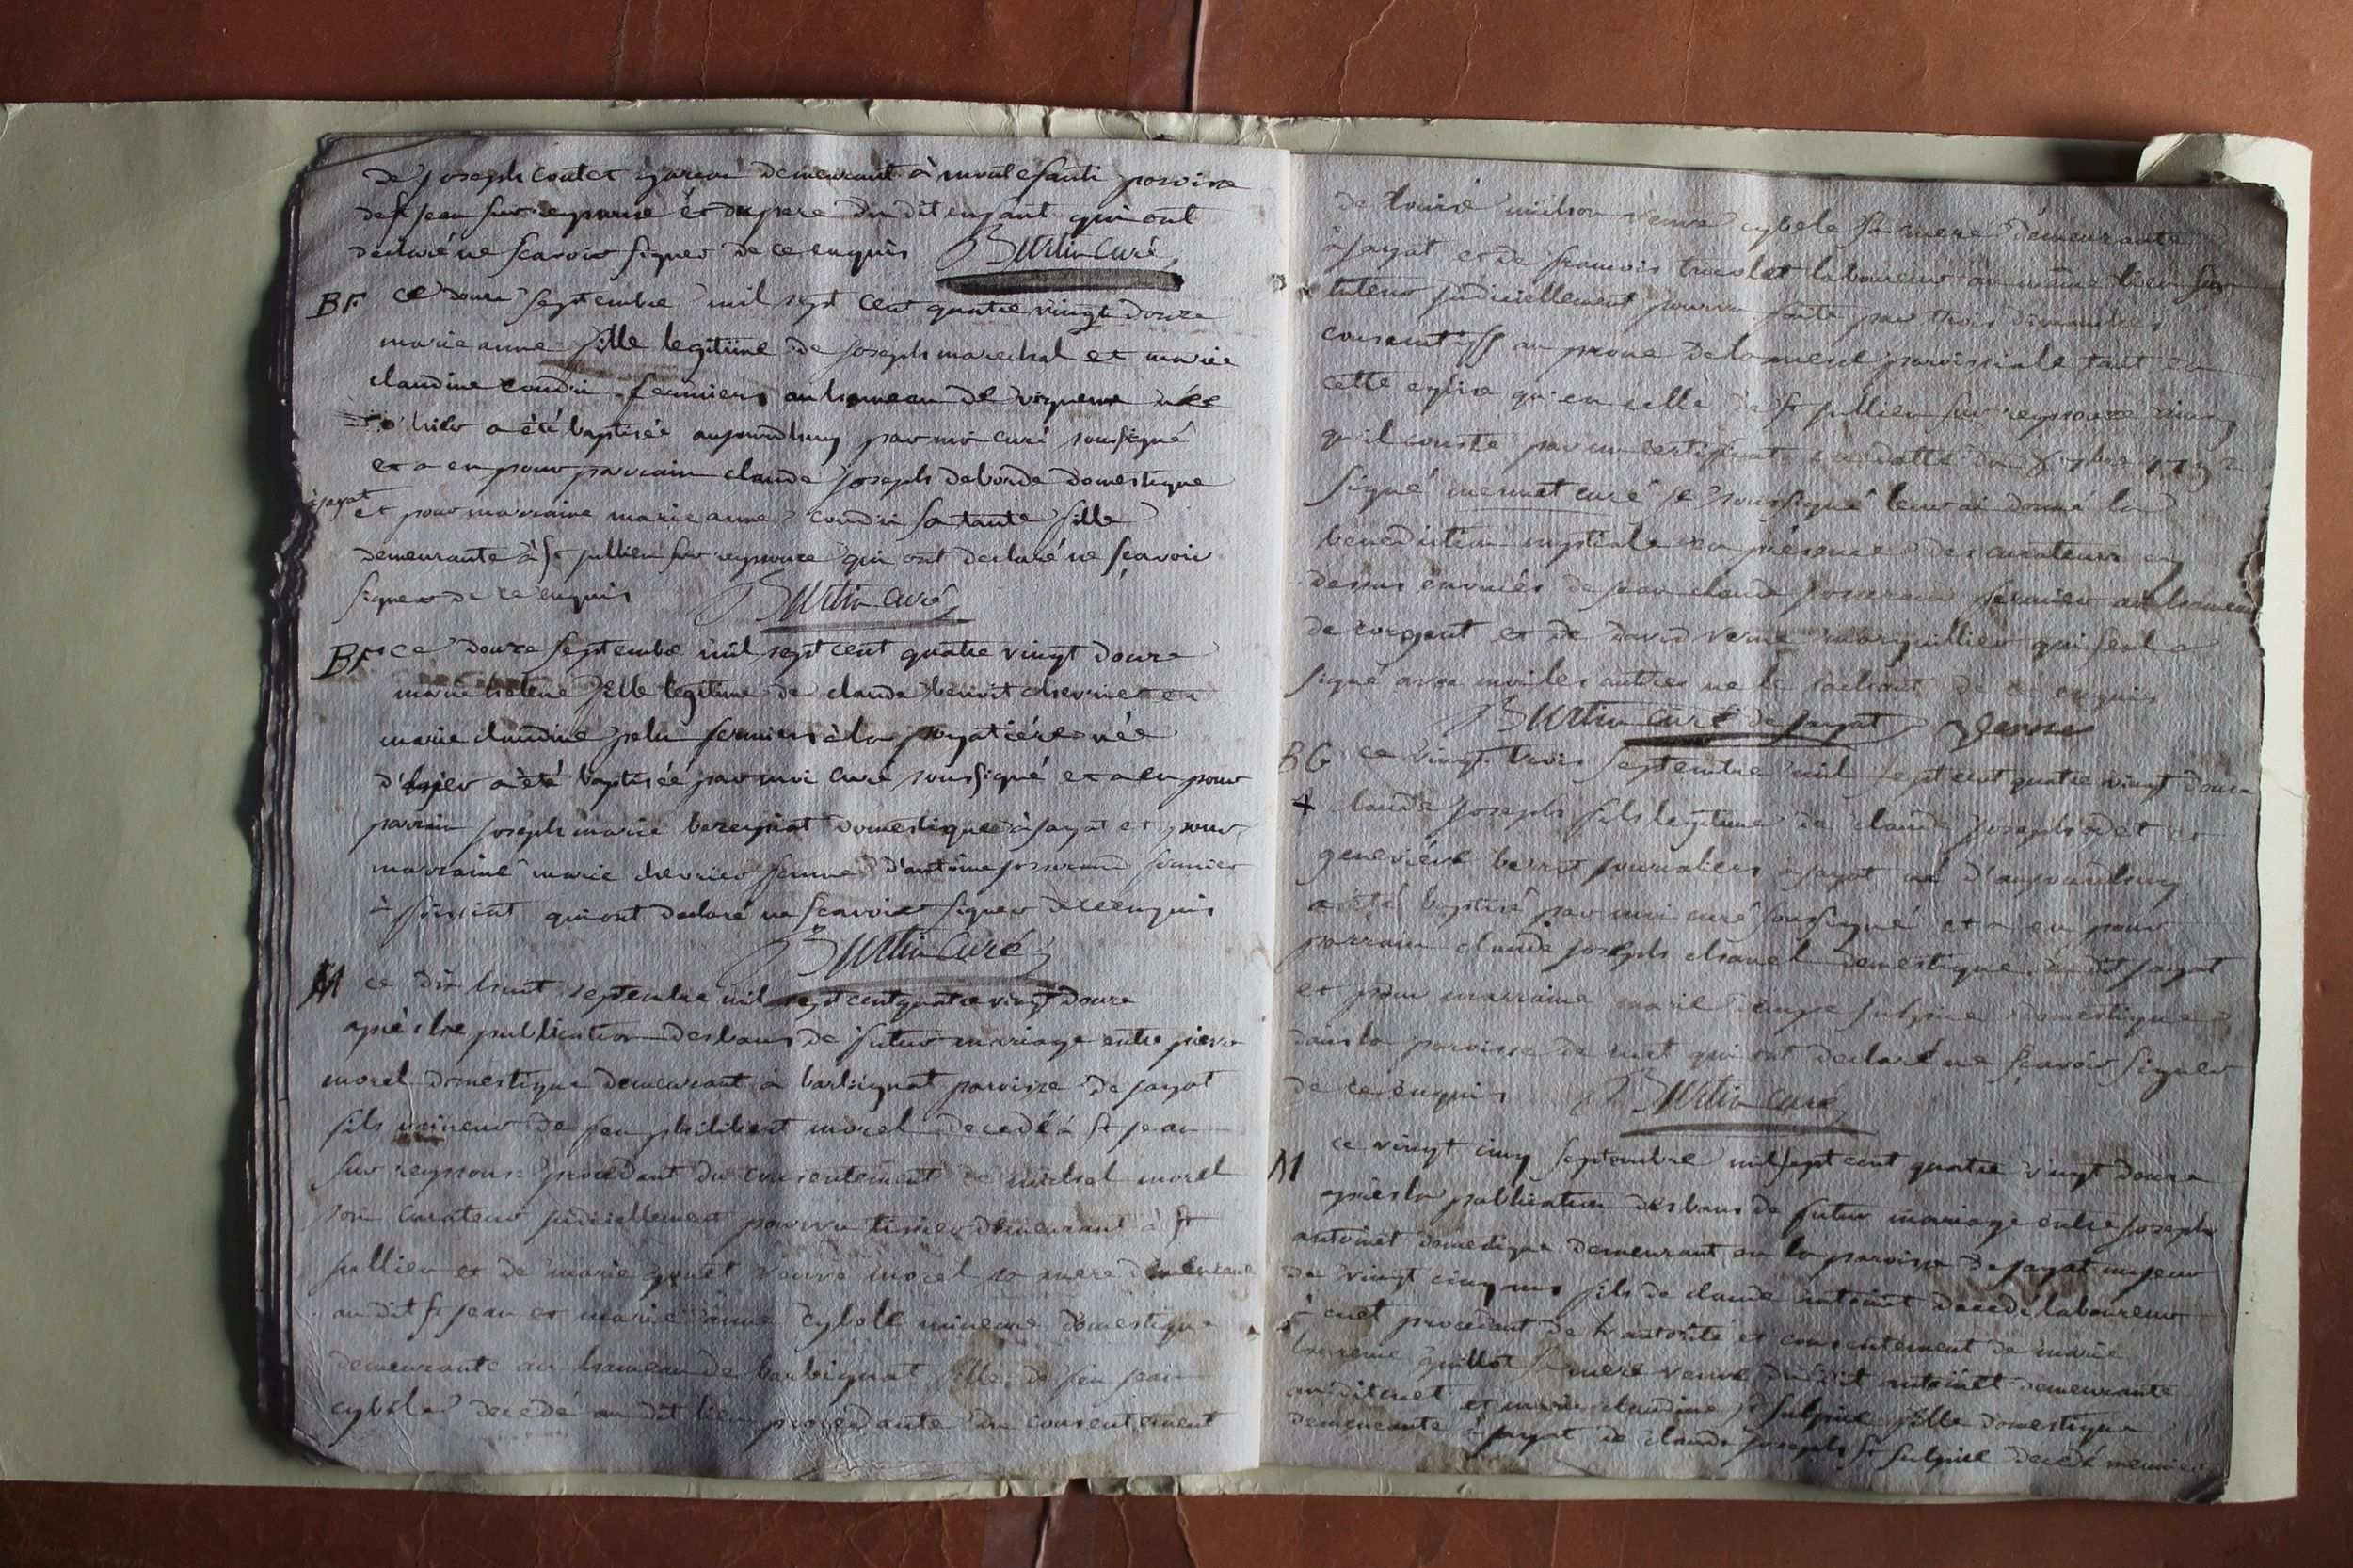 de joseph contet garçon demeurant à paroisse
de st jean sur reyssouse et du pere du dit enfant qui ont
declaré ne scavoir signer de ce enquis Burtin curé
BF ce douze septembre mil sept cent quatre vingt douze
marie anne fille legitime de joseph marechal et marie
claudine condri fermiers au hameau de née
d'hier a été baptisée aujourdhuy par moi curé soussigné
et a eu pour parrain claude joseph deborde domestique
à jayat
et pour marraine marie anne condri sa tante fille
demeurante à st jullien sur reyssouze qui ont declaré ne scavoir
signer de ce enquis Burtin curé
BF ce douze septembre mil sept cent quatre vingt douze
marie helene fille legitime de claude benoit chevrier et
marie claudine pelu fermiers à la née
d'hier a été baptisée par moi curé soussigné et a eu pour
parrain joseph marie bereyziat domestique à jayat et pour
marraine marie chevrier femme d'antoine josserand fermier
à foissiat qui ont declaré ne scavoir signer de ce enquis
Burtin curé
M ce dix huit septembre mil sept cent quatre vingt douze
après la publication des bans de futur mariage entre pierre
morel domestique demeurant à barbignat paroisse de jayat
fils mineur de feu philibert morel decedé à st jean
sur reyssouze procedant du consentement de michel morel
son curateur judiciellement pourvu demeurant à st
jullien et de marie veuve morel sa mere demeurante
au dit st jean et marie anne cybele mineure domestique
demeurante au hameau de barbignat fille de feu jean
cybele decedé au dit lieu procedante du consentement
de veuve cybele sa mere demeurante
à jayat et de francois laboureur au même lieu son
tuteur judiciellement pourvu faite par trois dimanches
consecutifs au prone de la messe paroissiale tant en
cette eglise qu'en celle de st jullien sur reyssouze ainsi
qu'il conste par un certificat en datte du 8 7bre 1792
signé curé je soussigné leur ai donné la
benediction nuptiale en présence des curateurs cy
dessus enoncés de jean claude josserand fermier au hameau
de corgent et de david verne marguillier qui seul a
signé avec moi les autres ne le sachant de ce enquis
Burtin curé de jayat Verne
BG ce vingt trois septembre mil sept cent quatre vingt douze
+ claude joseph fils legitime de claude joseph et
geneviève journaliers à jayat né d'aujourdhuy
a été baptisé par moi curé soussigné et a eu pour
parrain claude joseph chanel domestique au dit jayat
et pour marraine marie sulpice domestique
dans la paroisse de cuet qui ont declaré ne scavoir signer
de ce enquis Burtin curé
M ce vingt cinq septembre mil sept cent quatre vingt douze
après la publication des bans de futur mariage entre joseph
antoinet domestique demeurant en la paroisse de jayat majeur
de vingt cinq ans fils de claude antoinet decedé laboureur
à cuet procedant de l'autorité et consentement de marie
laurence guillot sa mere veuve du dit antoinet demeurante
au dit cuet et marie claudine st sulpice fille domestique
demeurante à jayat de claude joseph st sulpice decedé meunier